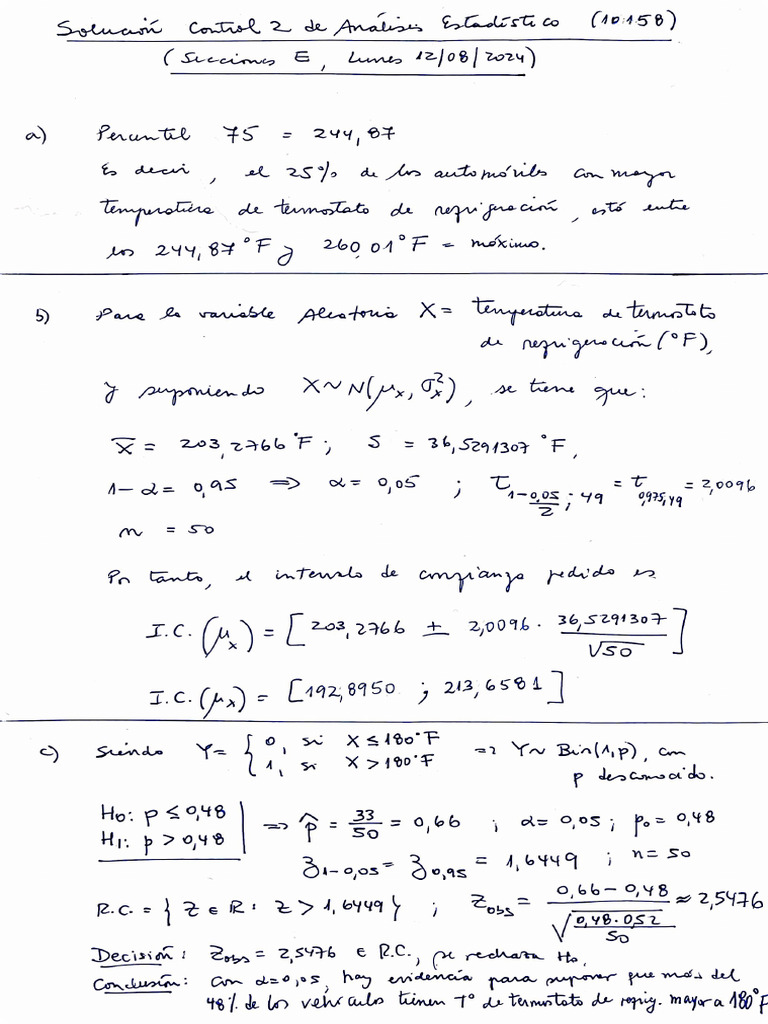 Solución Control 2 de Análisis Estadístico (10158)
(Secciones E, Lunes 12/08/2024)
a) Percentil 75 = 244,87
Es decir, el 25% de los automóviles con mayor
temperatura de termostato de refrigeración, está entre
los 244,87°F y 260,01°F = máximo.
b) Para la variable Aleatoria X = temperatura de termostato
de refrigeración (°F),
y suponiendo X ~ N(μx, σx²), se tiene que:
X̄ = 203,2766 °F ; S = 36,5291307 °F,
1-α = 0,95 ⇒ α = 0,05 ; t1-0,05/2 ; 49 = t0,975,49 = 2,0096
n = 50
Por tanto, el intervalo de confianza pedido es
I.C.(μx) = [203,2766 ± 2,0096 · 36,5291307/√50]
I.C.(μx) = [192,8950 ; 213,6581]
c) Siendo Y = { 0, si X ≤ 180°F
1, si X > 180°F ⇒ Y ~ Bin(1,p), con
p desconocido.
H0: p ≤ 0,48
H1: p > 0,48 ⇒ p̂ = 33/50 = 0,66 ; α = 0,05 ; p0 = 0,48
z1-0,05 = z0,95 = 1,6449 ; n = 50
R.C. = { Z ∈ R : Z > 1,6449 } ; Zobs = (0,66 - 0,48)/√(0,48·0,52/50) ≈ 2,5476
Decisión: Zobs = 2,5476 ∈ R.C., se rechaza H0.
Conclusión: Con α = 0,05, hay evidencia para suponer que más del
48% de los vehículos tienen T° de termostato de refrig. mayor a 180°F